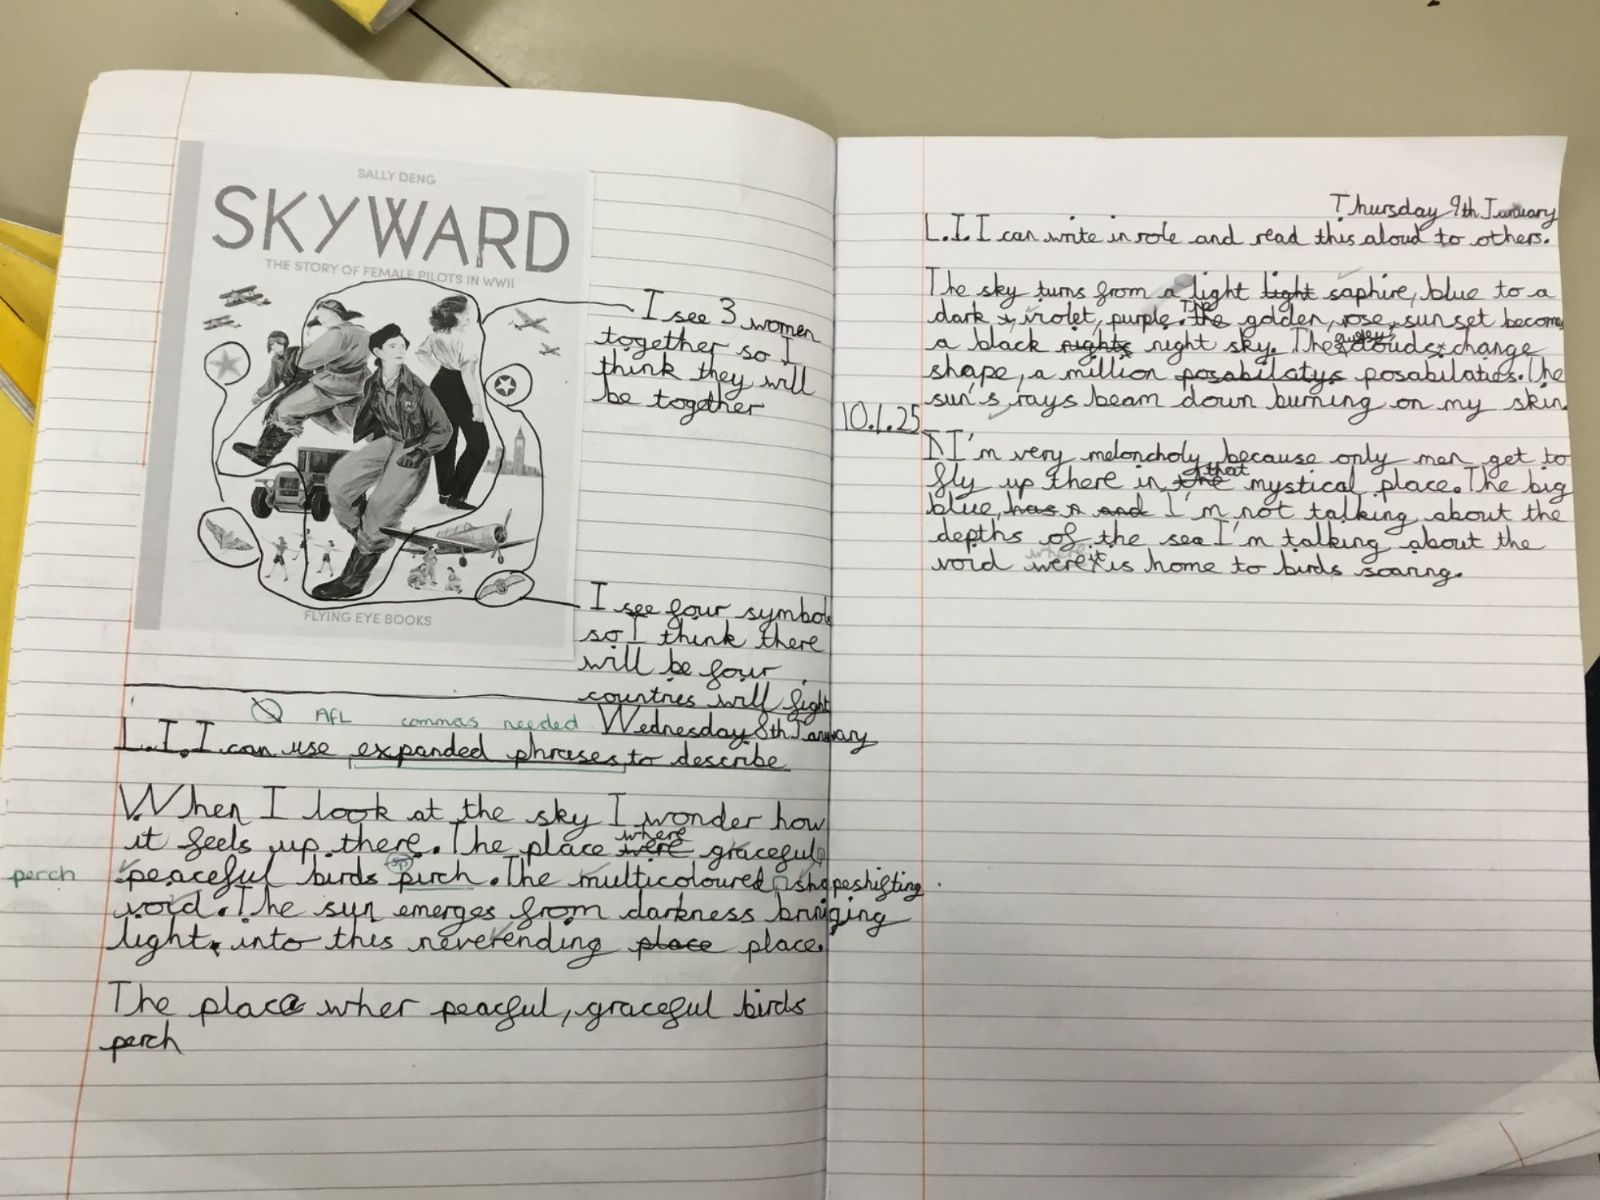 SALLY DENG
SKYWARD
THE STORY OF FEMALE PILOTS IN WWII
I see 3 women
together so I
think they will
be together
FLYING EYE BOOKS
I see four symbols
so I think there
will be four
countries will fight
AFL commas needed Wednesday 8th January
L.I. I can use expanded phrases to describe
When I look at the sky I wonder how
it feels up there. The place where were graceful
perch peaceful birds sp pirch. The multicoloured shapeshifting
void. The sun emerges from darkness bringing
light, into this neverending place place.
The place wher peacful, graceful birds
perch
Thursday 9th January
L.I. I can write in role and read this aloud to others.
The sky turns from a light light saphire, blue to a
dark violet, purple. The the golden, rose, sunset becomes
a black nights night sky. The clouds change
shape, a million posabilatys posabilaties. The
sun's rays beam down burning on my skin.
10.1.25
I'm very meloncholy because only men get to
fly up there in the that mystical place. The big
blue, has and I'm not talking about the
depths of the sea I'm talking about the
void were where it is home to birds soaring.